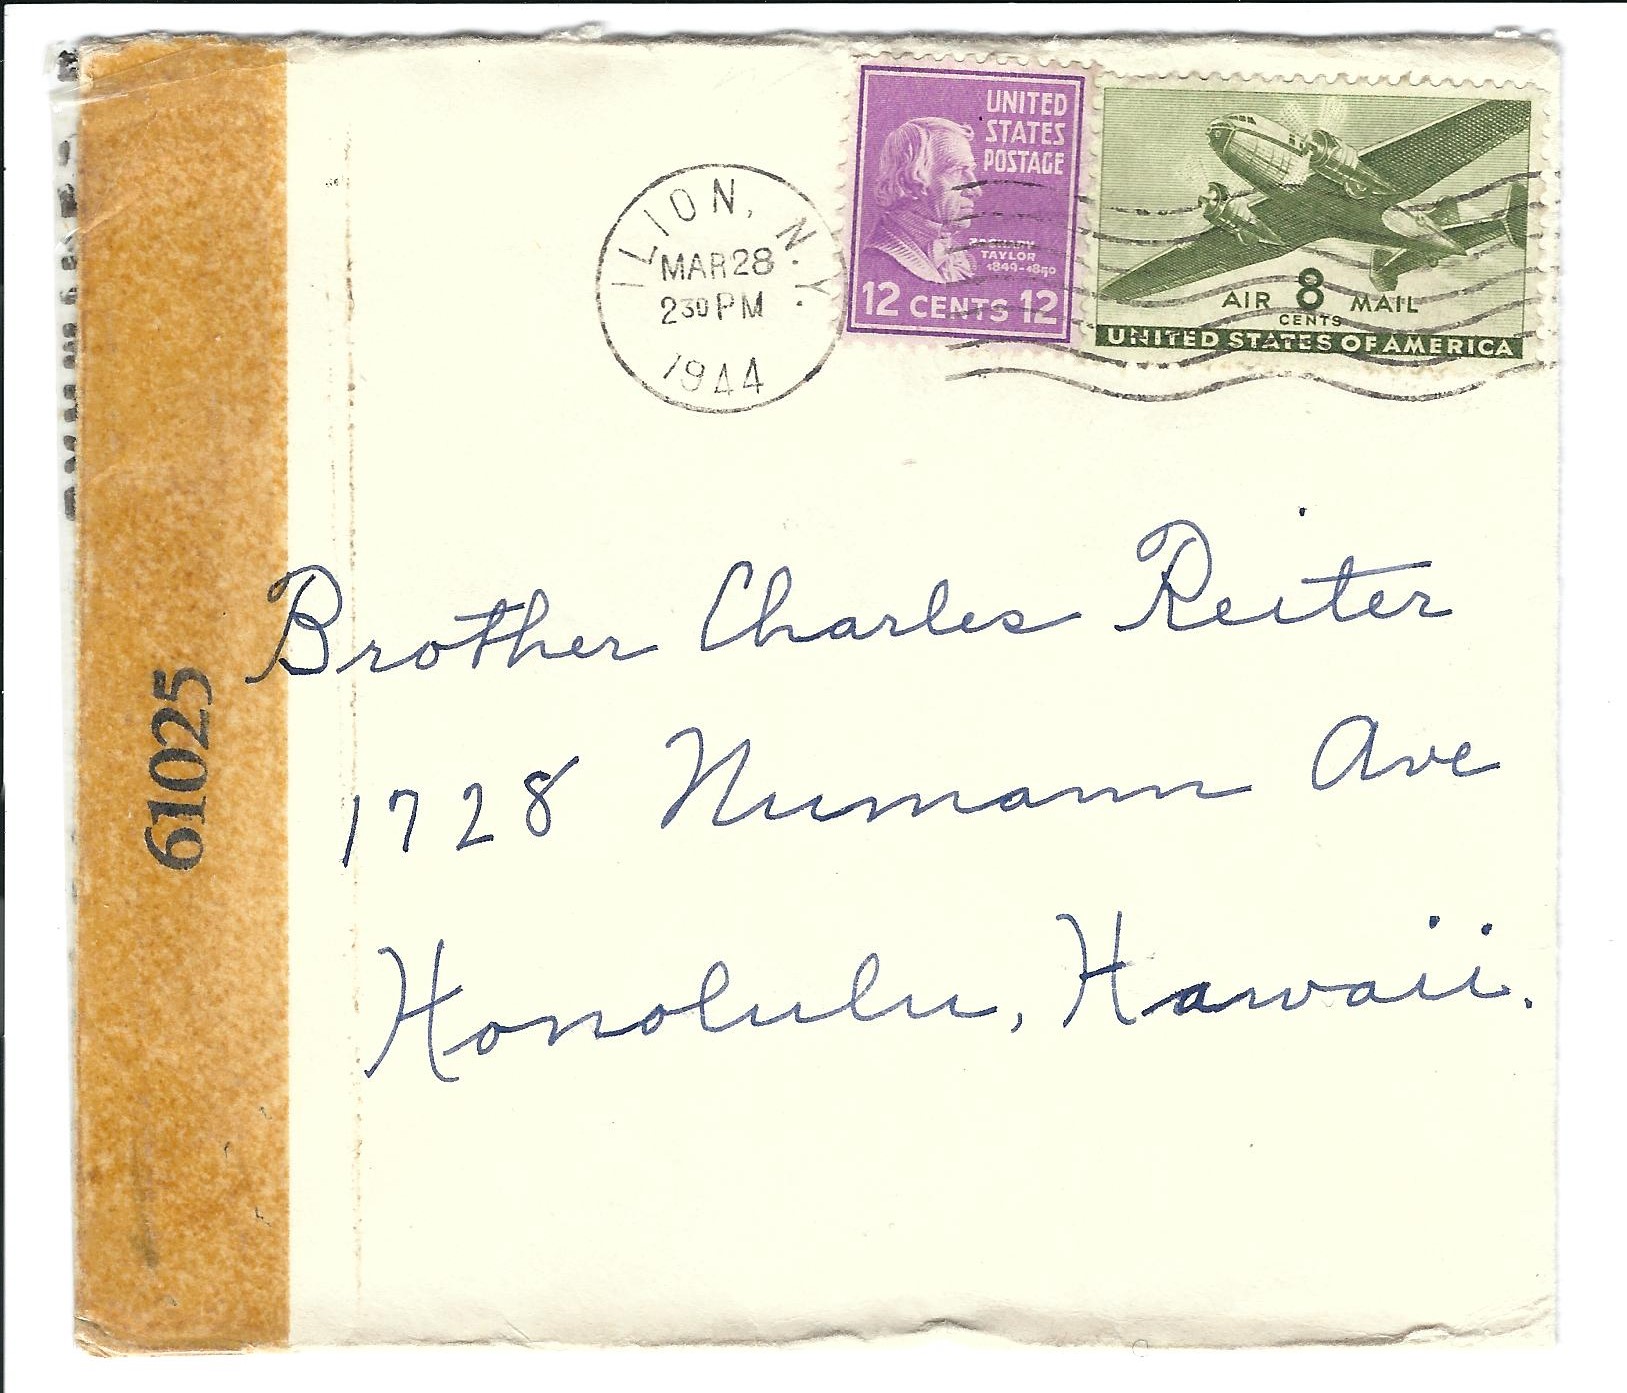 UNITED
STATES
POSTAGE
ZACHARY
TAYLOR
1849-1850
12 CENTS 12
AIR 8 MAIL
CENTS
UNITED STATES OF AMERICA
ILION, N.Y.
MAR 28
230 PM
1944
Brother Charles Reiter
1728 Numann Ave
Honolulu, Hawaii.
61025